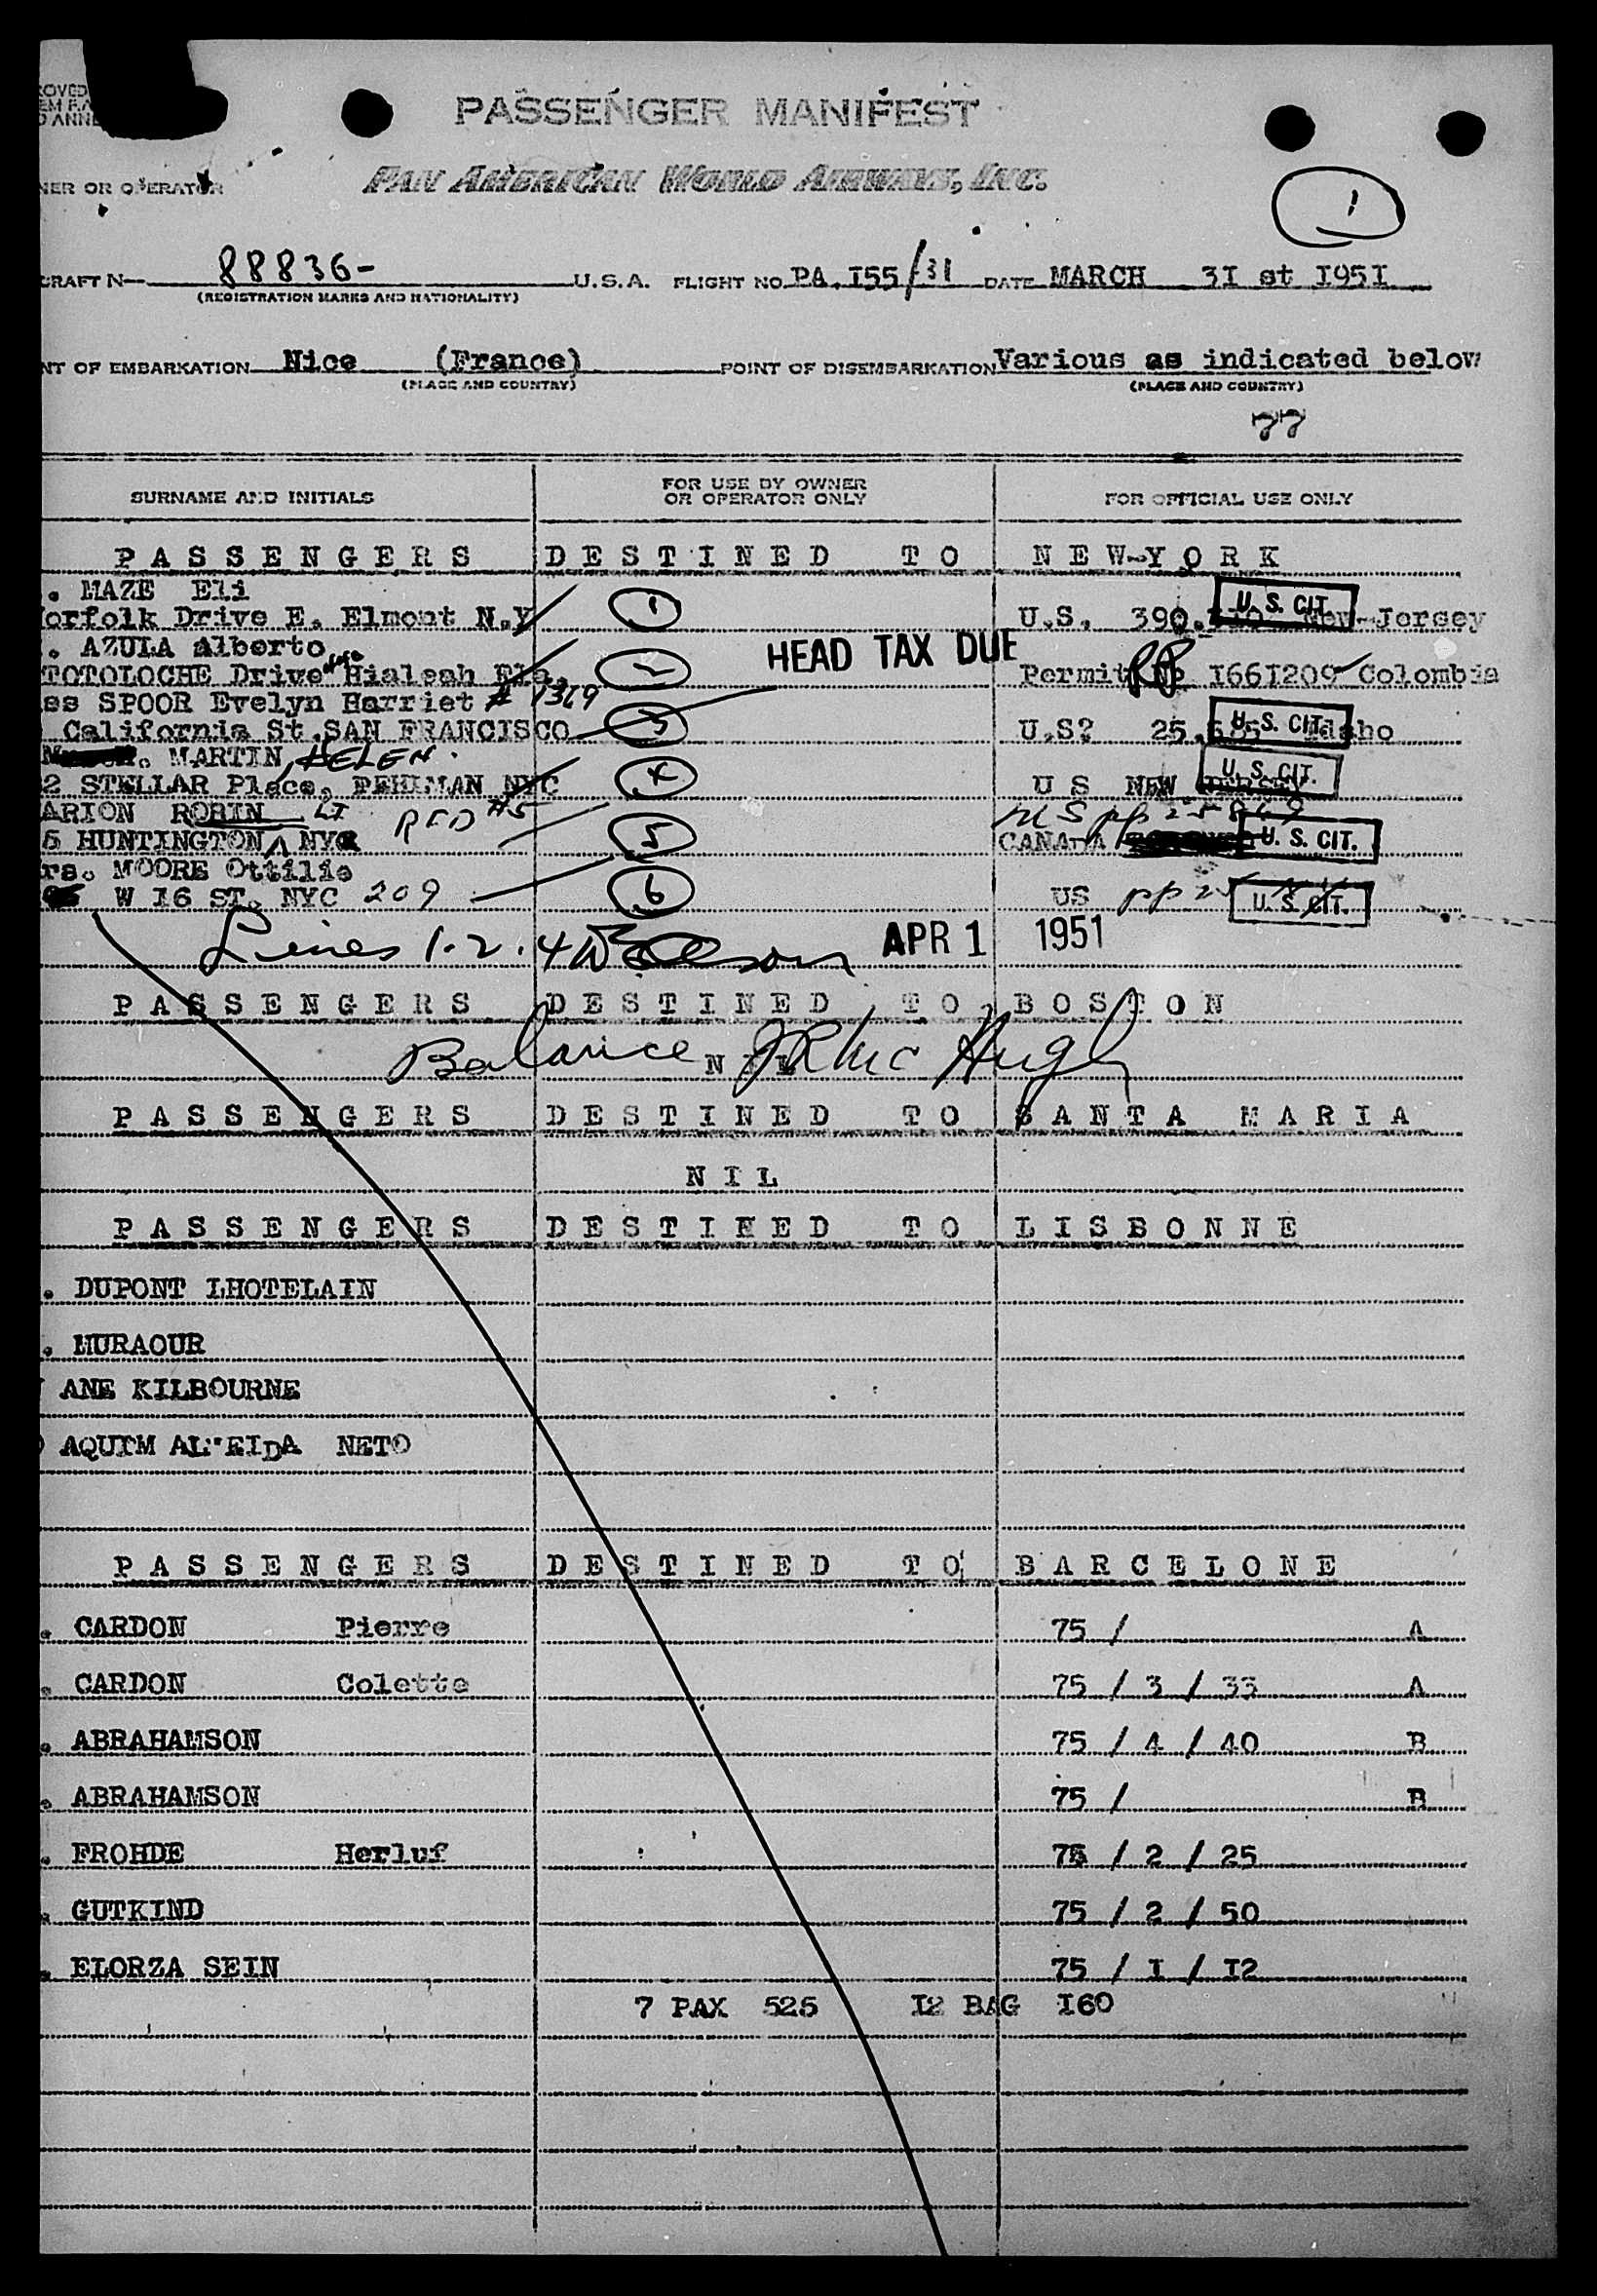 PASSENGER MANIFEST
NER OR OPERATOR PAN AMERICAN WORLD AIRWAYS, INC.
1
CRAFT N— 88836- U.S.A. FLIGHT NO PA. I55/31 DATE MARCH 3I st I95I
(REGISTRATION MARKS AND NATIONALITY)
NT OF EMBARKATION Nice (France) POINT OF DISEMBARKATION Various as indicated below
(PLACE AND COUNTRY) (PLACE AND COUNTRY)
77
SURNAME AND INITIALS FOR USE BY OWNER OR OPERATOR ONLY FOR OFFICIAL USE ONLY
PASSENGERS DESTINED TO NEW-YORK
. MAZE Eli
orfolk Drive E. Elmont N.Y 1 U.S. 390. U.S. CIT. New-Jersey
. AZULA Alberto HEAD TAX DUE
TOTOLOCHE Drive Hialeah Fla. 2 Permit No I66I209 Colombia
ss SPOOR Evelyn Harriet # 1369
California St. SAN FRANCISCO 3 U.S? 25. U.S. CIT. Idaho
. MARTIN, HELEN.
2 STELLAR Place, PEHLMAN NYC 4 U S NEW JERSEY U.S. CIT.
ARION ROBIN LI RFD #5 US pp 25849
5 HUNTINGTON NY 5 CANADA U.S. CIT.
rs. MOORE Ottilie
W I6 ST. NYC 209 6 US pp U.S. CIT.
Lines 1.2.4 APR 1 1951
PASSENGERS DESTINED TO BOSTON
Balance NIL JR McHugh
PASSENGERS DESTINED TO SANTA MARIA
NIL
PASSENGERS DESTINED TO LISBONNE
. DUPONT LHOTELAIN
. MURAOUR
ANE KILBOURNE
AQUIM AL"EIDA NETO
PASSENGERS DESTINED TO BARCELONE
. CARDON Pierre 75 / A
. CARDON Colette 75 / 3 / 33 A
. ABRAHAMSON 75 / 4 / 40 B
. ABRAHAMSON 75 / B
. FROHDE Herluf 75 / 2 / 25
. GUTKIND 75 / 2 / 50
. ELORZA SEIN 75 / I / I2
7 PAX 525 I2 BAG I60